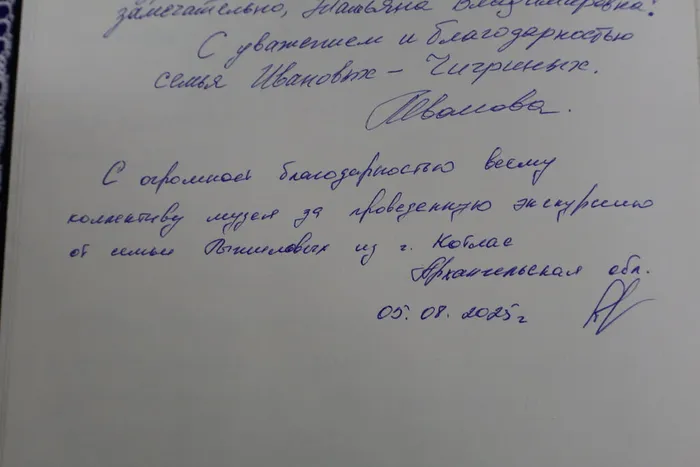 замечательно, Татьяна Владимировна!
С уважением и благодарностью
семья Ивановых – Чигриных.
Иванова.
С огромной благодарностью всему
коллективу музея за проведенную экскурсию
от семьи из г. Котлас
Архангельская обл.
05.08.2025г